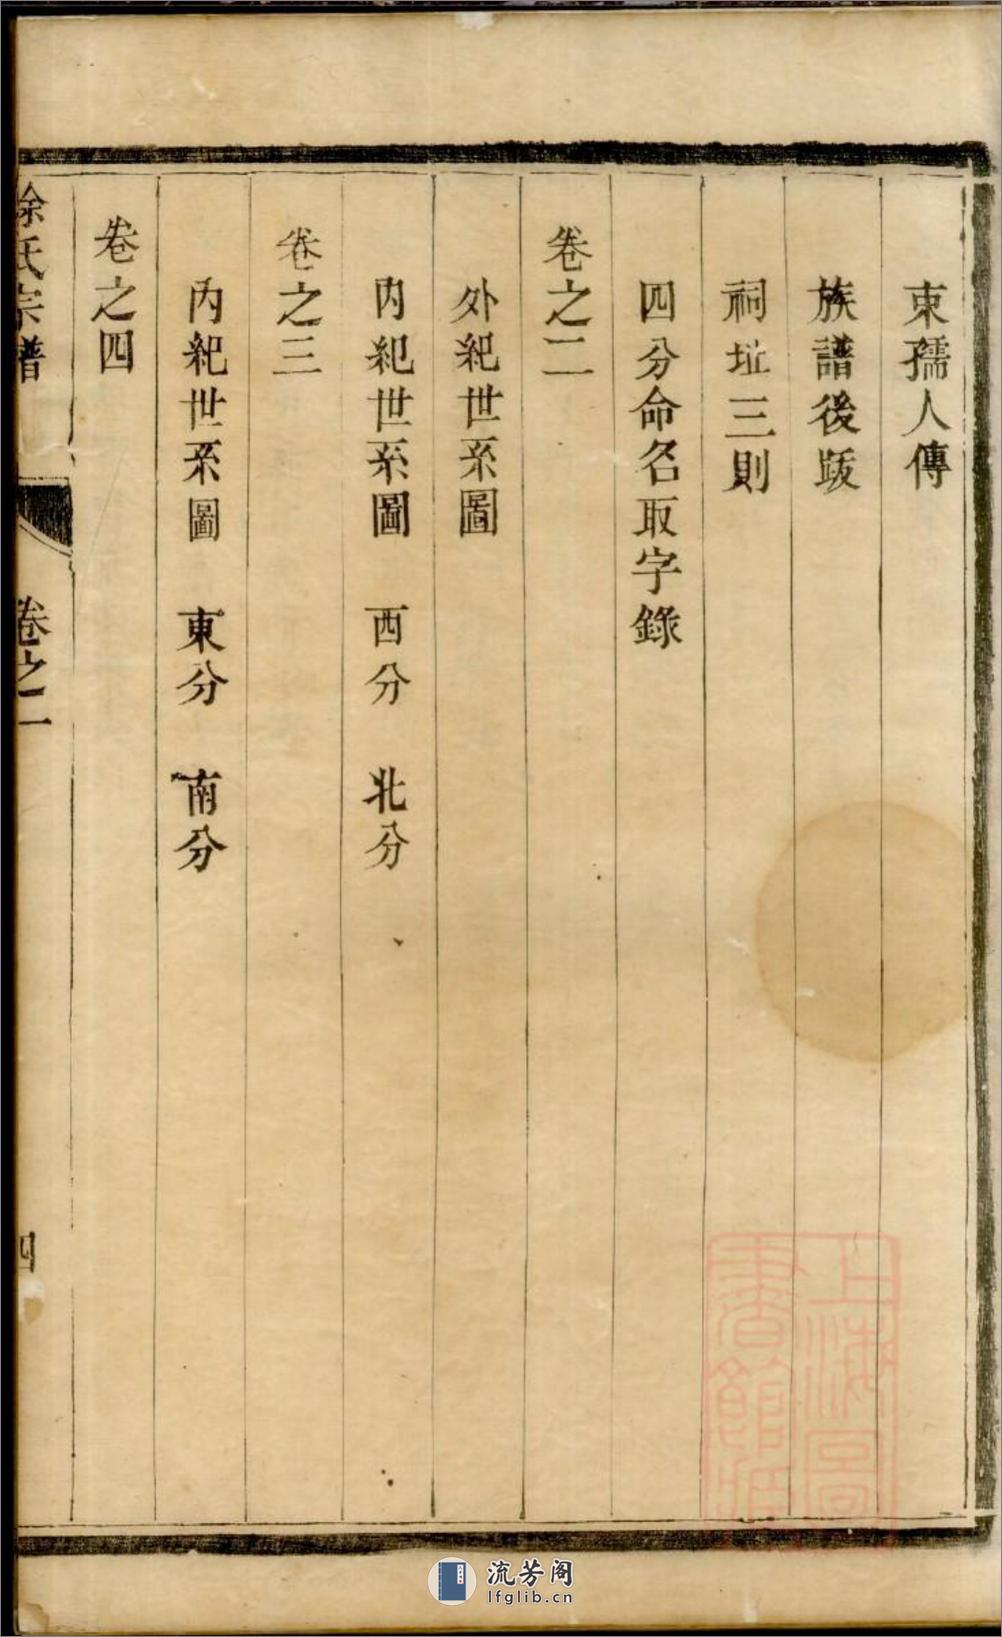 東孺人傳
族譜後跋
祠址三則
四分命名取字錄
卷之二
外紀世系圖
內紀世系圖 西分 北分
卷之三
內紀世系圖 東分 南分
卷之四
徐氏宗譜 卷之二 四
上海圖書館藏
流芳阁
lfglib.cn